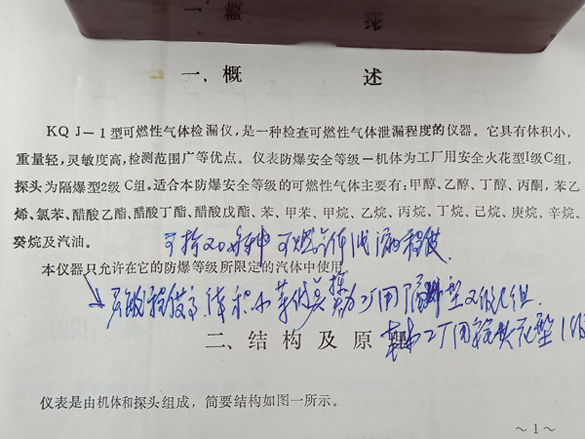 一、概述
KQJ—1型可燃性气体检漏仪,是一种检查可燃性气体泄漏程度的仪器。它具有体积小,
重量轻,灵敏度高,检测范围广等优点。仪表防爆安全等级—机体为工厂用安全火花型Ⅰ级C组,
探头为隔爆型2级C组。适合本防爆安全等级的可燃性气体主要有:甲醇、乙醇、丁醇、丙酮、苯乙
烯、氯苯、醋酸乙酯、醋酸丁酯、醋酸戊酯、苯、甲苯、甲烷、乙烷、丙烷、丁烷、己烷、庚烷、辛烷、
癸烷及汽油。
可检20多种可燃气体泄漏程度
本仪器只允许在它的防爆等级所限定的汽体中使用。
灵敏程度高 体积小 工厂用隔爆型2级C组
二、结构及原理
工厂用安全火花型1级
仪表是由机体和探头组成,简要结构如图一所示。
~1~